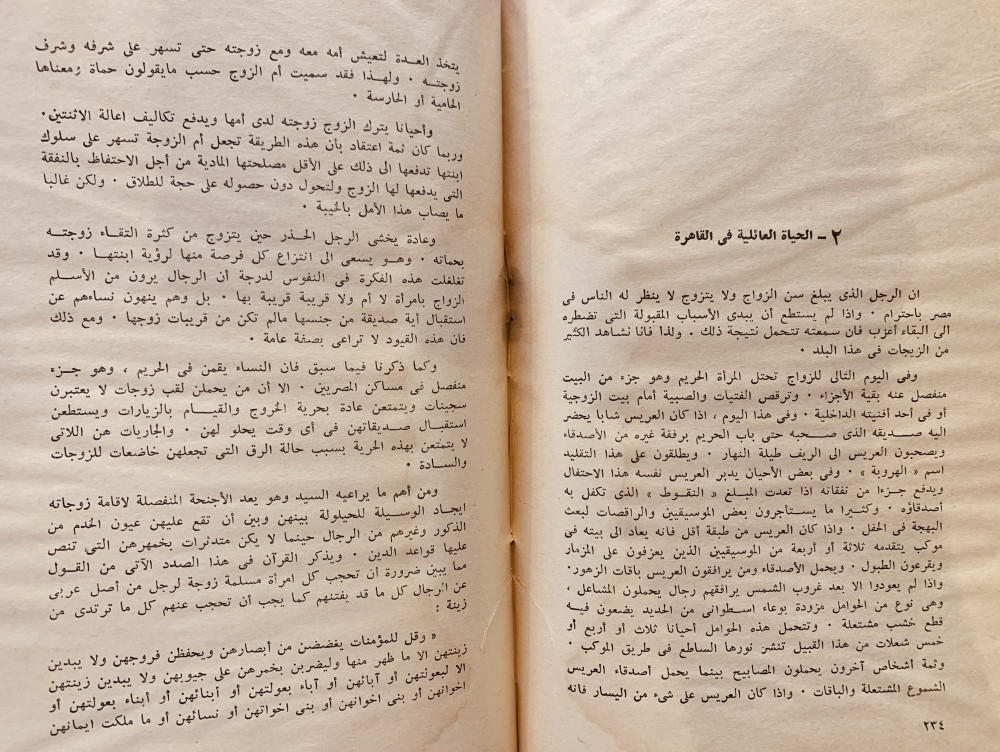 ٢ ـ الحياة العائلية فى القاهرة
ان الرجل الذى يبلغ سن الزواج ولا يتزوج لا ينظر له الناس فى
مصر باحترام ٠ واذا لم يستطع أن يبدى الأسباب المقبولة التى تضطره
الى البقاء أعزب فان سمعته تتحمل نتيجة ذلك ٠ ولذا فانا نشاهد الكثير
من الزيجات فى هذا البلد ٠
وفى اليوم التالى للزواج تحتل المرأة الحريم وهو جزء من البيت
منفصل عنه بقية الأجزاء ٠ وترقص الفتيات والصبية أمام بيت الزوجية
أو فى أحد أفنيته الداخلية ٠ وفى هذا اليوم ، اذا كان العريس شابا يحضر
اليه صديقه الذى صحبه حتى باب الحريم برفقة غيره من الأصدقاء
ويصحبون العريس الى الريف طيلة النهار ٠ ويطلقون على هذا التقليد
اسم « الهروبة » ٠ وفى بعض الأحيان يدبر العريس نفسه هذا الاحتفال
ويدفع جزءا من نفقاته اذا تعدت المبلغ « النقوط » الذى تكفل به
أصدقاؤه ٠ وكثيرا ما يستأجرون بعض الموسيقيين والراقصات لبعث
البهجة فى الحفل ٠ واذا كان العريس من طبقة أقل فانه يعاد الى بيته فى
موكب يتقدمه ثلاثة أو أربعة من الموسيقيين الذين يعزفون على المزمار
ويقرعون الطبول ٠ ويحمل الأصدقاء ومن يرافقون العريس باقات الزهور٠
واذا لم يعودوا الا بعد غروب الشمس يرافقهم رجال يحملون المشاعل ،
وهى نوع من الحوامل مزودة بوعاء اسطوانى من الحديد يضعون فيه
قطع خشب مشتعلة ٠ وتتحمل هذه الحوامل أحيانا ثلاث أو أربع أو
خمس شعلات من هذا القبيل تنشر نورها الساطع فى طريق الموكب ٠
وثمة أشخاص آخرون يحملون المصابيح بينما يحمل أصدقاء العريس
الشموع المشتعلة والباقات ٠ واذا كان العريس على شىء من اليسار فانه
٢٣٤
يتخذ العدة لتعيش أمه معه ومع زوجته حتى تسهر على شرفه وشرف
زوجته ٠ ولهذا فقد سميت أم الزوج حسب مايقولون حماة ومعناها
الحامية أو الحارسة ٠
وأحيانا يترك الزوج زوجته لدى أمها ويدفع تكاليف اعالة الاثنتين٠
وربما كان ثمة اعتقاد بأن هذه الطريقة تجعل أم الزوجة تسهر على سلوك
ابنتها تدفعها الى ذلك على الأقل مصلحتها المادية من أجل الاحتفاظ بالنفقة
التى يدفعها لها الزوج ولتحول دون حصوله على حجة للطلاق ٠ ولكن غالبا
ما يصاب هذا الأمل بالخيبة ٠
وعادة يخشى الرجل الحذر حين يتزوج من كثرة التقاء زوجته
بحماته ٠ وهو يسعى الى انتزاع كل فرصة منها لرؤية ابنتها ٠ وقد
تغلغلت هذه الفكرة فى النفوس لدرجة أن الرجال يرون من الأسلم
الزواج بامرأة لا أم ولا قريبة قريبة بها ٠ بل وهم ينهون نساءهم عن
استقبال أية صديقة من جنسها مالم تكن من قريبات زوجها ٠ ومع ذلك
فان هذه القيود لا تراعى بصفة عامة ٠
وكما ذكرنا فيما سبق فان النساء يقمن فى الحريم ، وهو جزء
منفصل فى مساكن المصريين ٠ الا أن من يحملن لقب زوجات لا يعتبرن
سجينات ويتمتعن عادة بحرية الخروج والقيام بالزيارات ويستطعن
استقبال صديقاتهن فى أى وقت يحلو لهن ٠ والجاريات هن اللاتى
لا يتمتعن بهذه الحرية بسبب حالة الرق التى تجعلهن خاضعات للزوجات
والسادة ٠
ومن أهم ما يراعيه السيد وهو يعد الأجنحة المنفصلة لاقامة زوجاته
ايجاد الوسيلة للحيلولة بينهن وبين أن تقع عليهن عيون الخدم من
الذكور وغيرهم من الرجال حينما لا يكن متدثرات بخمرهن التى تنص
عليها قواعد الدين ٠ ويذكر القرآن فى هذا الصدد الآتى من القول
مما يبين ضرورة أن تحجب كل امرأة مسلمة زوجة لرجل من أصل عربى
عن الرجال كل ما قد يفتنهم كما يجب أن تحجب عنهم كل ما ترتدى من
زينة :
« وقل للمؤمنات يغضضن من أبصارهن ويحفظن فروجهن ولا يبدين
زينتهن الا ما ظهر منها وليضربن بخمرهن على جيوبهن ولا يبدين زينتهن
الا لبعولتهن أو آبائهن أو آباء بعولتهن أو أبنائهن أو أبناء بعولتهن أو
اخوانهن أو بنى اخوانهن أو بنى اخواتهن أو نسائهن أو ما ملكت ايمانهن